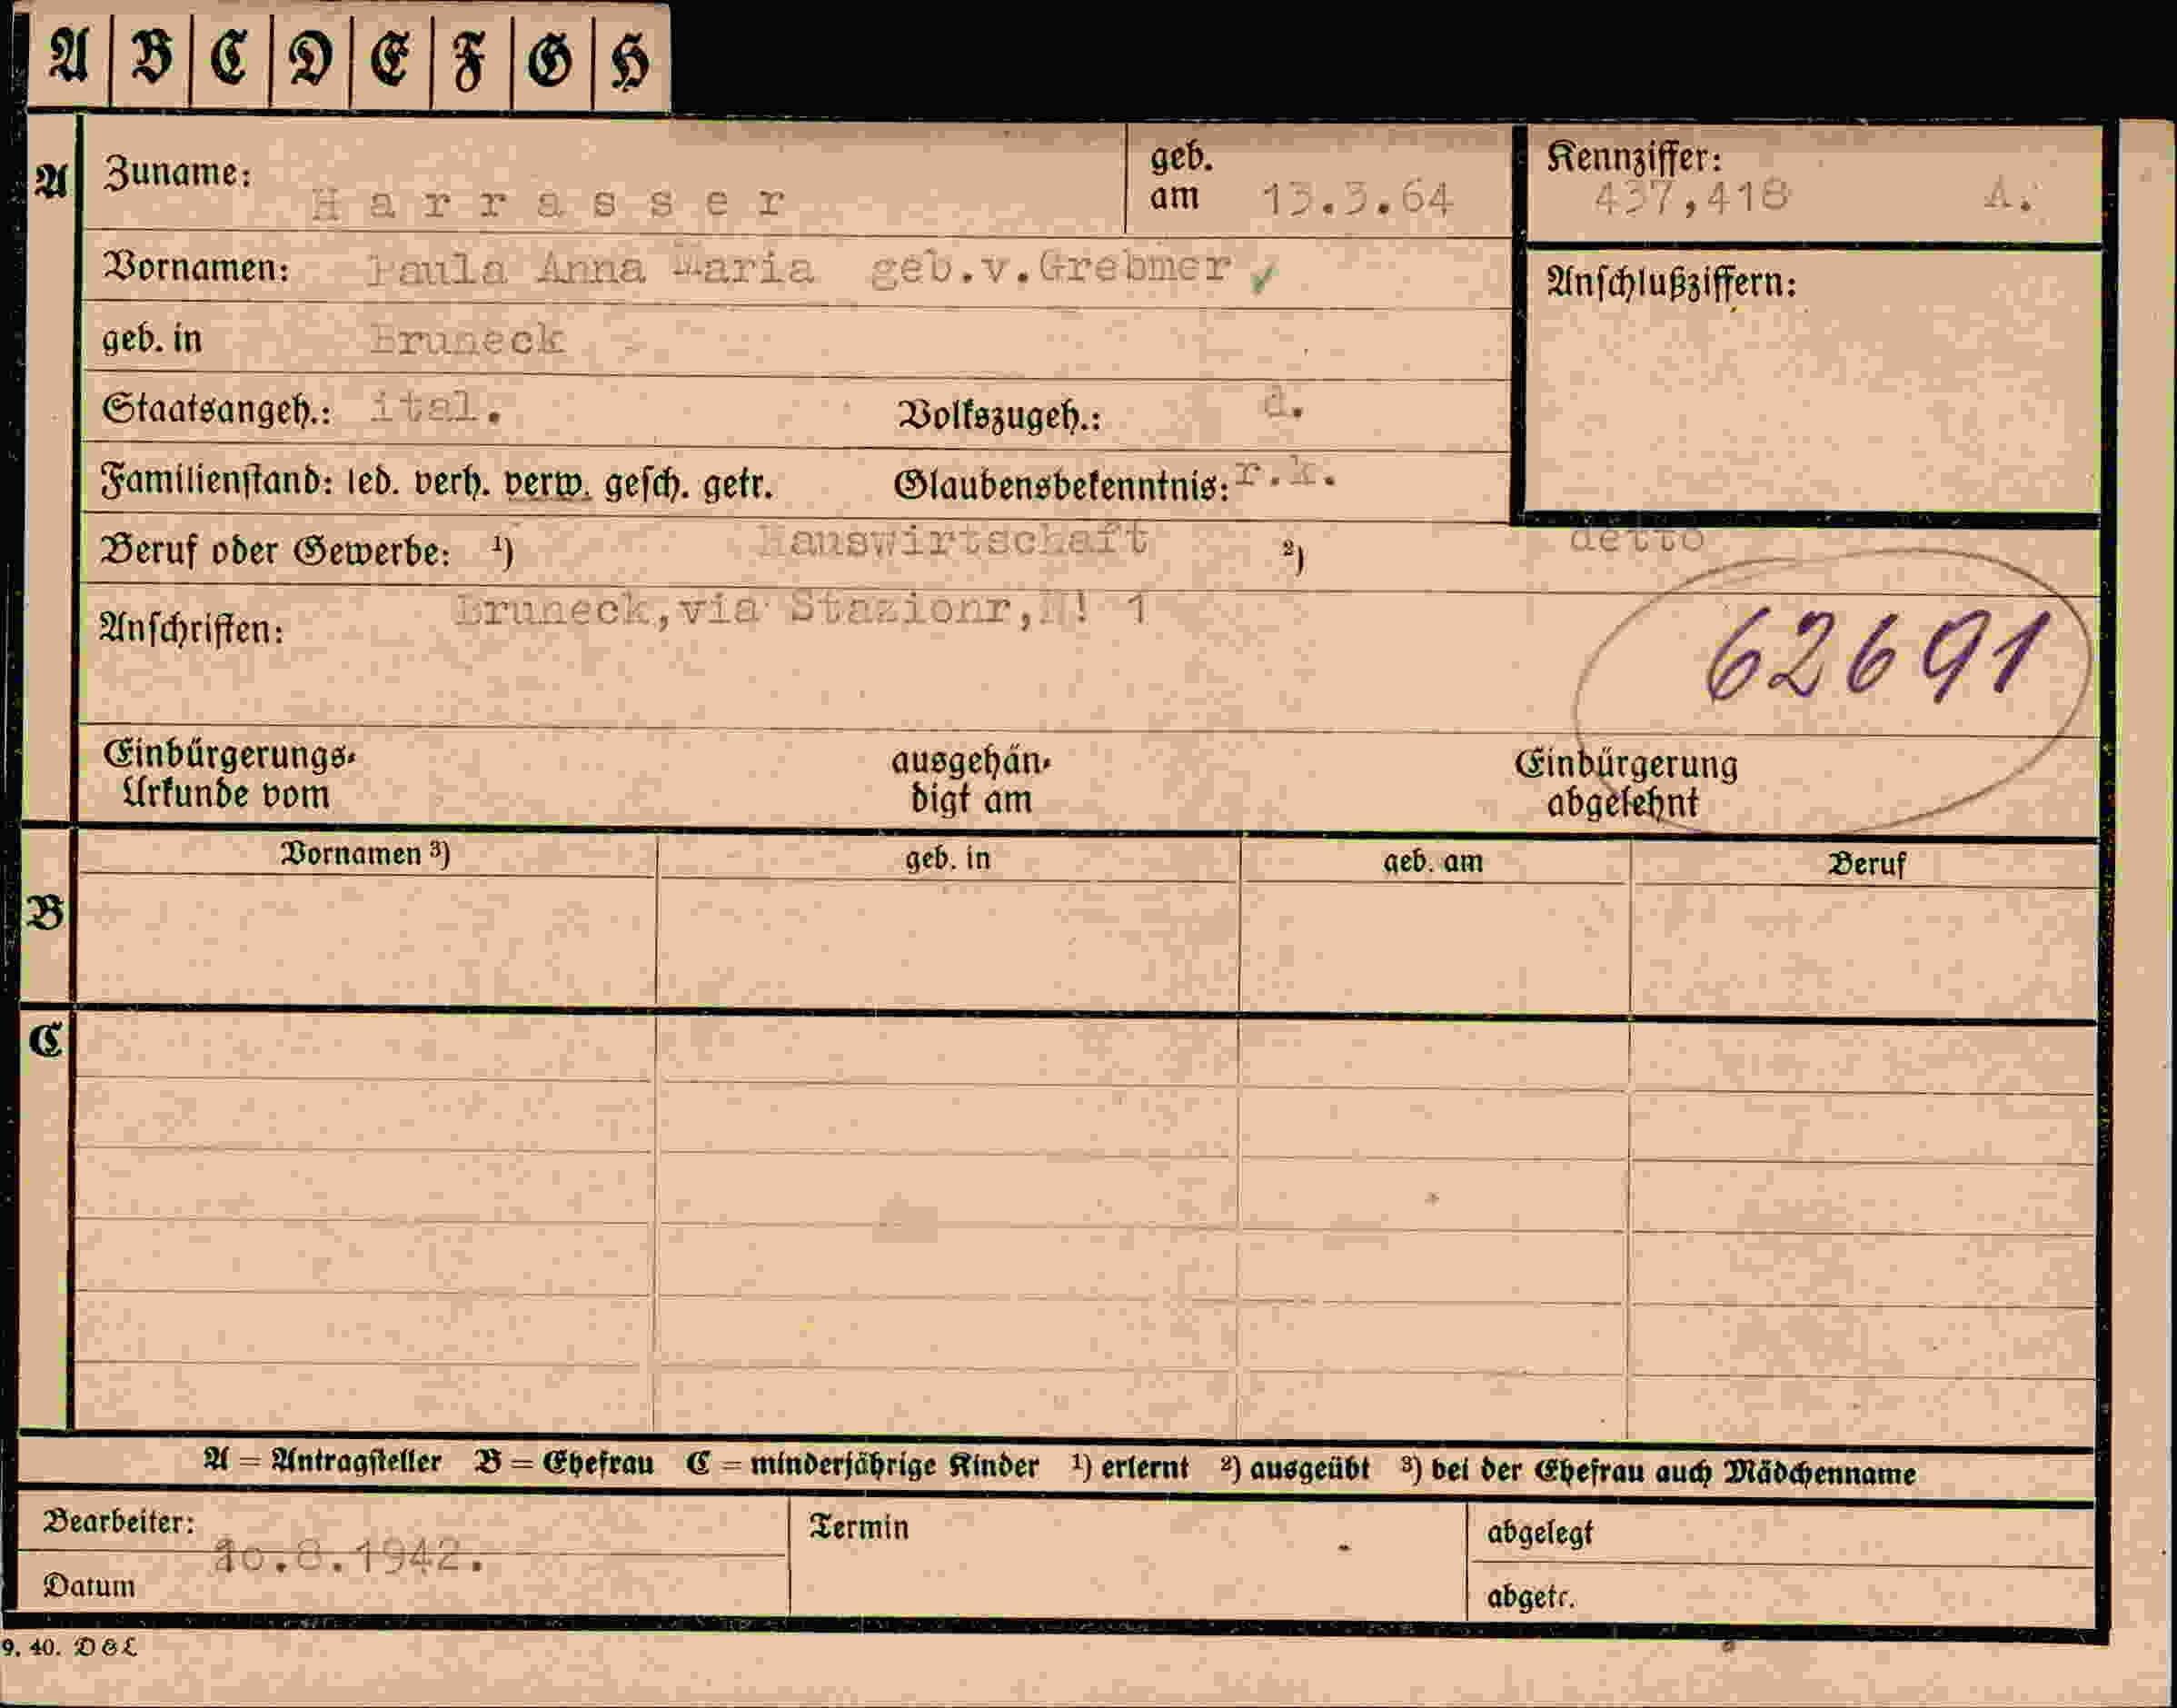 A B C D E F G H
A Zuname: Harrasser geb. am 13.3.64 Kennziffer: 437,418 A.
Vornamen: Paula Anna Maria geb.v.Grebmer ✓ Anschlußziffern:
geb. in Bruneck
Staatsangeh.: ital. Volkszugeh.: d.
Familienstand: led. verh. verw. gesch. getr. Glaubensbekenntnis: r.k.
Beruf oder Gewerbe: ¹) Hauswirtschaft ²) detto
Anschriften: Bruneck,via Stazionr,N! 1
62691
Einbürgerungs- Urkunde vom ausgehän- digt am Einbürgerung abgelehnt
Vornamen ³) geb. in geb. am Beruf
B
C
A = Antragsteller B = Ehefrau C = minderjährige Kinder ¹) erlernt ²) ausgeübt ³) bei der Ehefrau auch Mädchenname
Bearbeiter: Termin abgelegt
10.8.1942.
Datum abgetr.
9. 40. D&L